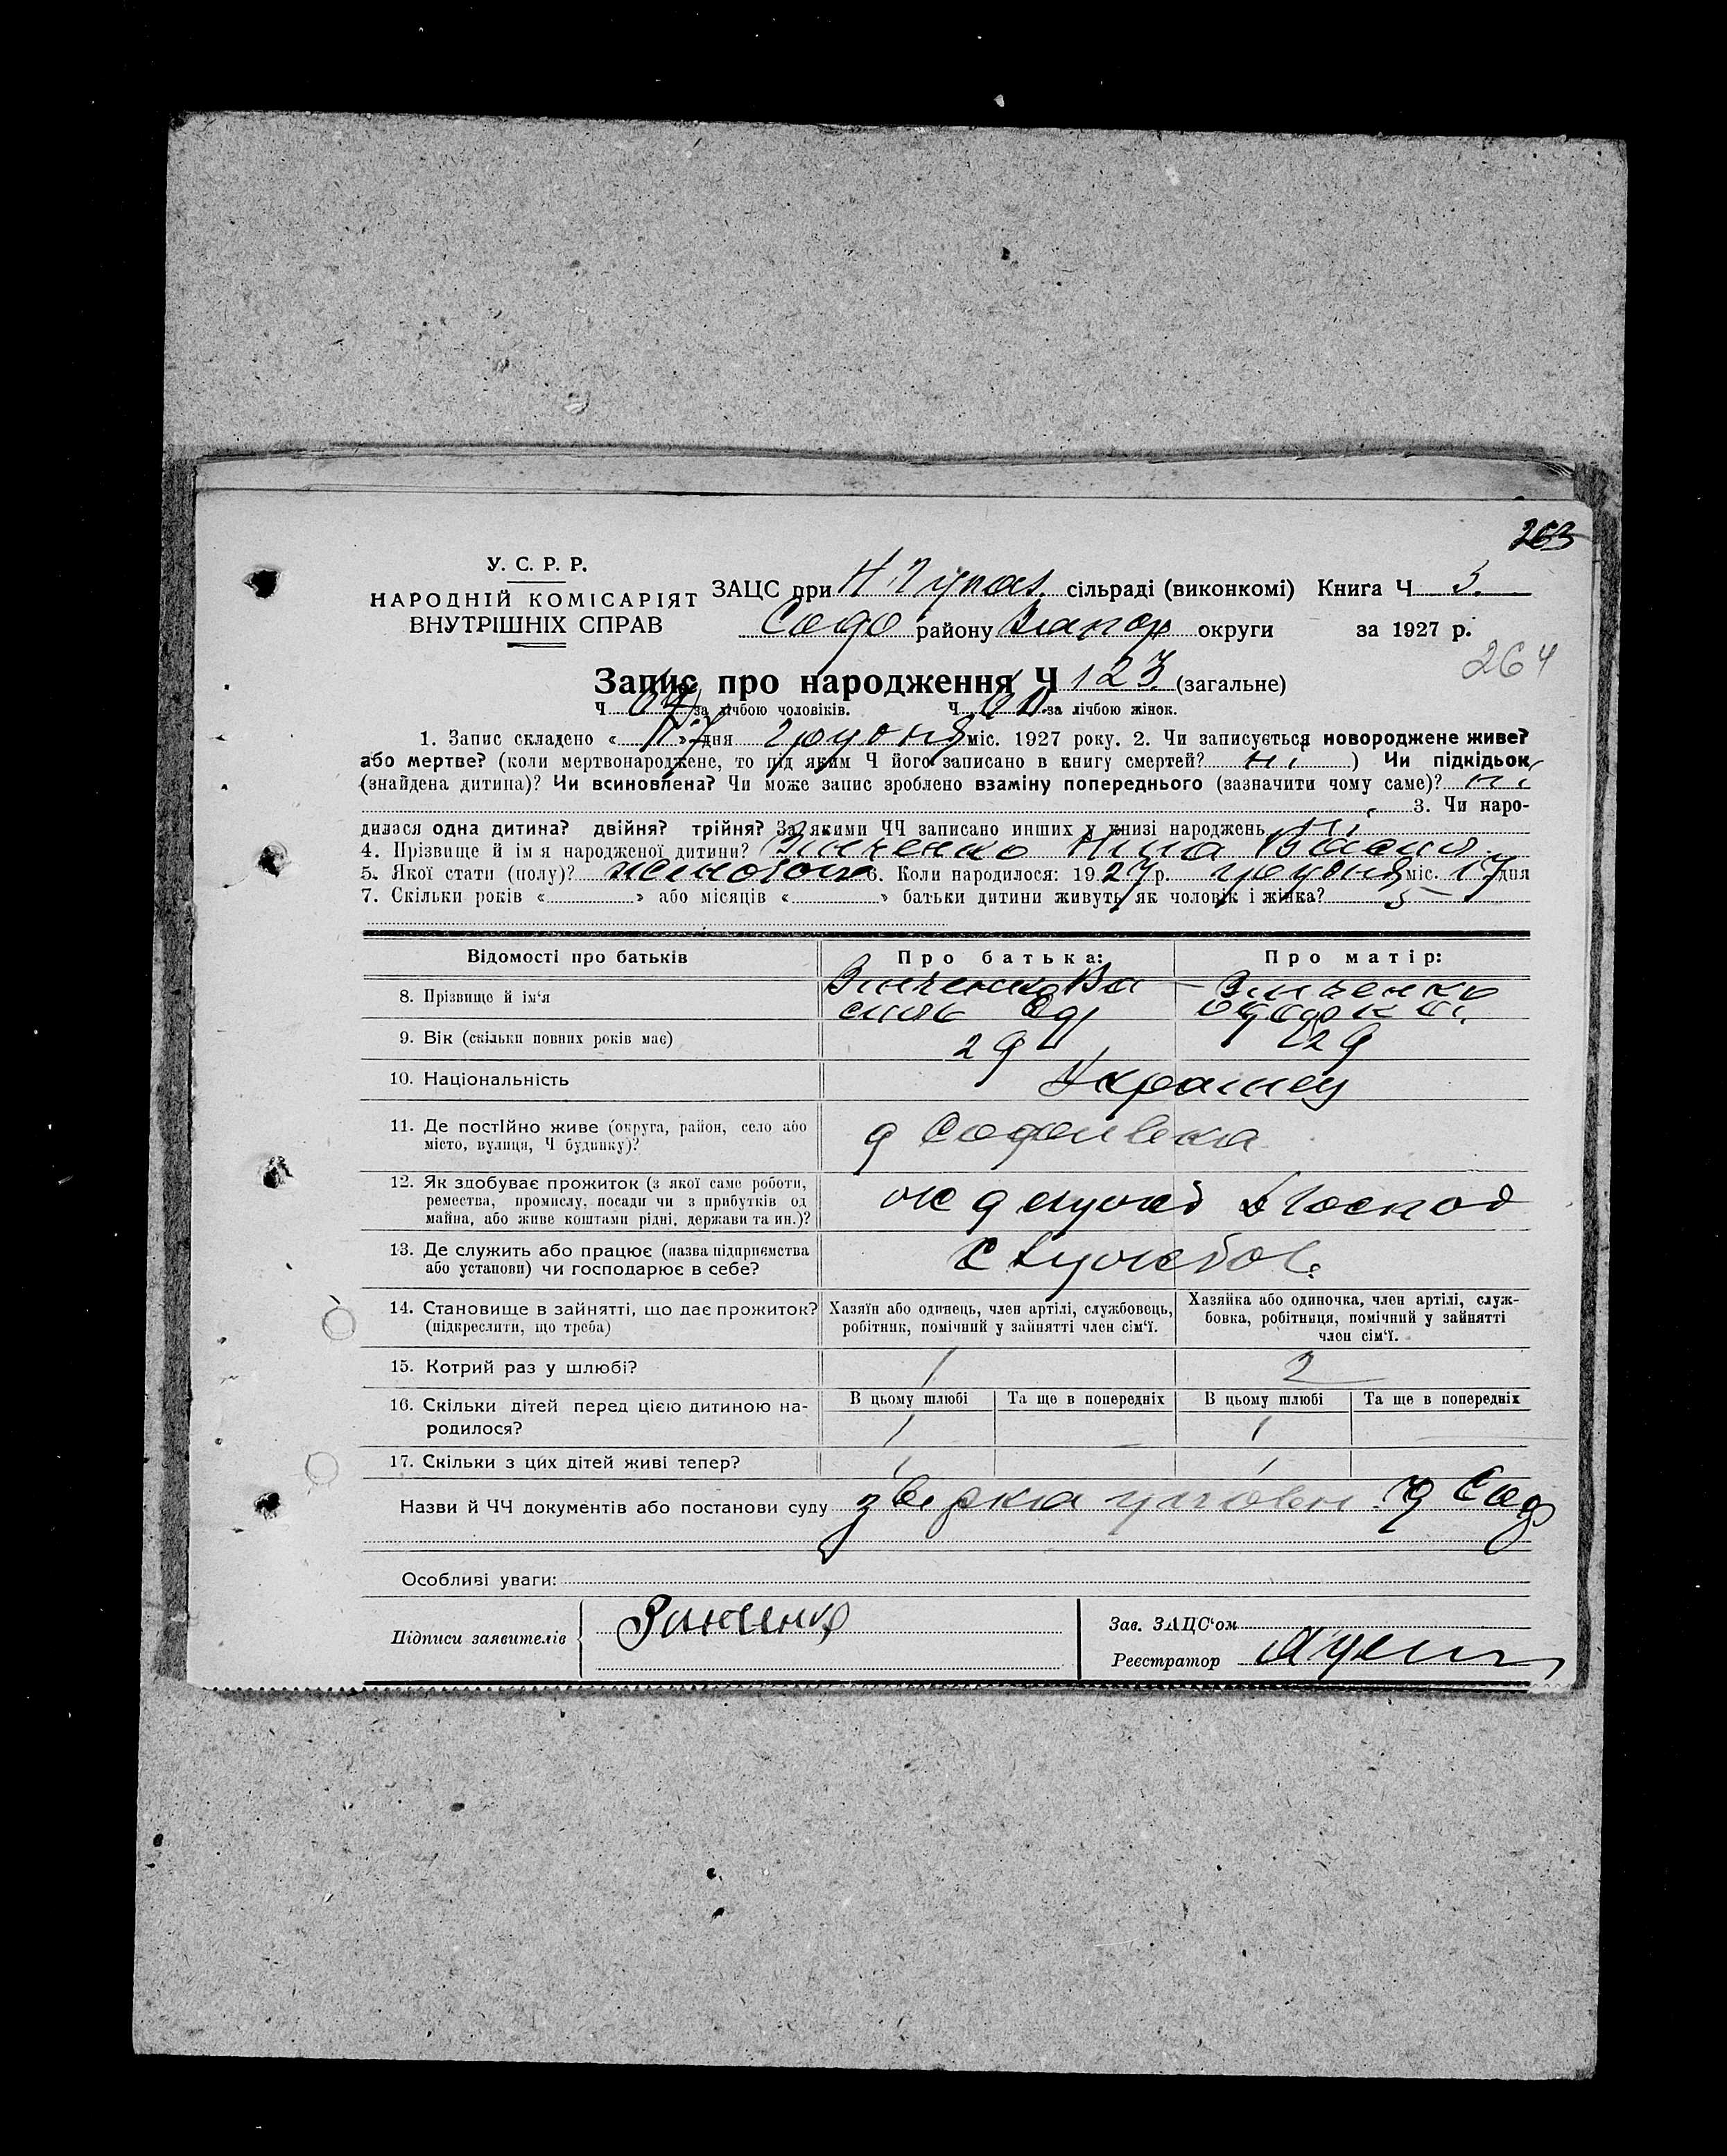 263
У. С. Р. Р.
НАРОДНІЙ КОМІСАРІЯТ
ВНУТРІШНІХ СПРАВ
ЗАЦС при сільраді (виконкомі) Книга Ч 5.
Садо району округи за 1927 р.
264
Запис про народження Ч 123 (загальне)
Ч за лічбою чоловіків. Ч за лічбою жінок.
1. Запис складено « » дня грудня міс. 1927 року. 2. Чи записується новороджене живе?
або мертве? (коли мертвонароджене, то під яким Ч його записано в книгу смертей? ні ) Чи підкідьок
(знайдена дитина)? Чи всиновлена? Чи може запис зроблено взаміну попереднього (зазначити чому саме)? ні
3. Чи наро-
дилася одна дитина? двійня? трійня? За якими ЧЧ записано инших у книзі народжень ні
4. Прізвище й ім'я народженої дитини? Зинченко Нина
5. Якої стати (полу)? 6. Коли народилося: 1927 р. грудня міс. 17 дня
7. Скільки років « » або місяців « » батьки дитини живуть як чоловік і жінка? 5
Відомості про батьків
Про батька:
Про матір:
8. Прізвище й ім'я
Зинченко Ва
силь
Зинченко
9. Вік (скільки повних років має)
29
29
10. Національність
Украинец
11. Де постійно живе (округа, район, село або
місто, вулиця, Ч будинку)?
12. Як здобуває прожиток (з якої саме роботи,
ремества, промислу, посади чи з прибутків од
майна, або живе коштами рідні, держави та ин.)?
13. Де служить або працює (назва підприємства
або установи) чи господарює в себе?
14. Становище в зайнятті, що дає прожиток?
(підкреслити, що треба)
Хазяїн або одинець, член артілі, службовець,
робітник, помічний у зайнятті член сім'ї.
Хазяйка або одиночка, член артілі, служ-
бовка, робітниця, помічний у зайнятті
член сім'ї.
15. Котрий раз у шлюбі?
1
2
16. Скільки дітей перед цією дитиною на-
родилося?
В цьому шлюбі Та ще в попередніх В цьому шлюбі Та ще в попередніх
1 — 1 —
17. Скільки з цих дітей живі тепер?
1 1
Назви й ЧЧ документів або постанови суду
Особливі уваги:
Підписи заявителів
Зинченко
Зав. ЗАЦС'ом
Реєстратор